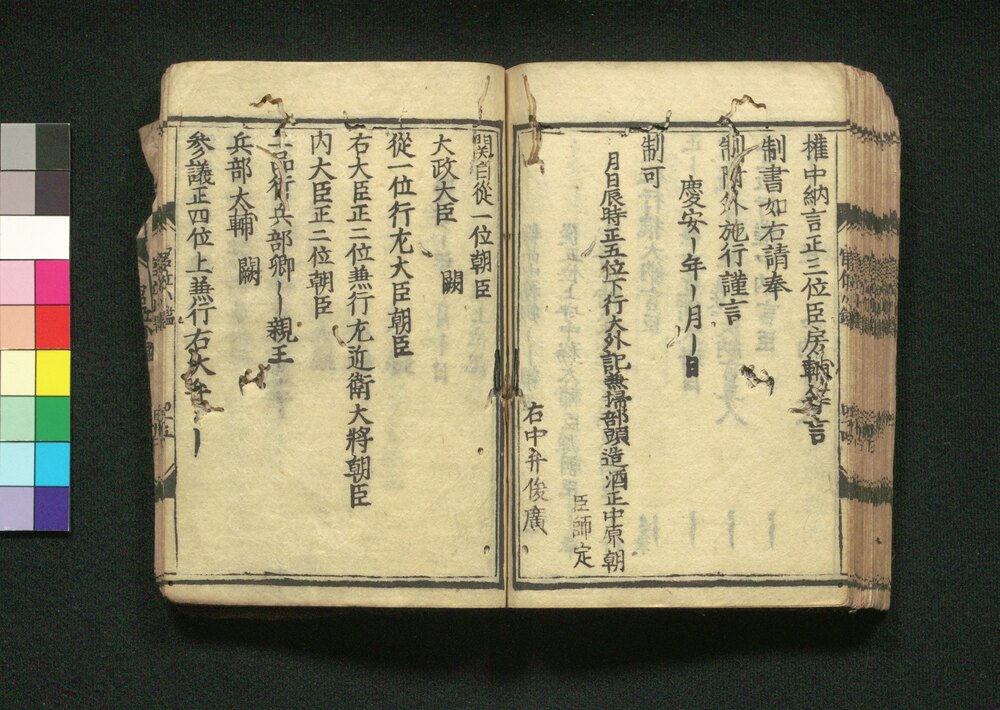 権中納言正三位臣房輔等言
制書如右請奉
制附外施行謹言
慶安〡年〡月〡日
制可
月日辰時正五位下行大外記兼掃部頭造酒正中原朝
臣師定
右中弁俊廣
関白從一位朝臣
大政大臣 闕
從一位行左大臣朝臣
右大臣正二位兼行左近衛大將朝臣
内大臣正二位朝臣
二品行兵部卿〡親王
兵部大輔 闕
參議正四位上兼行右大弁〡